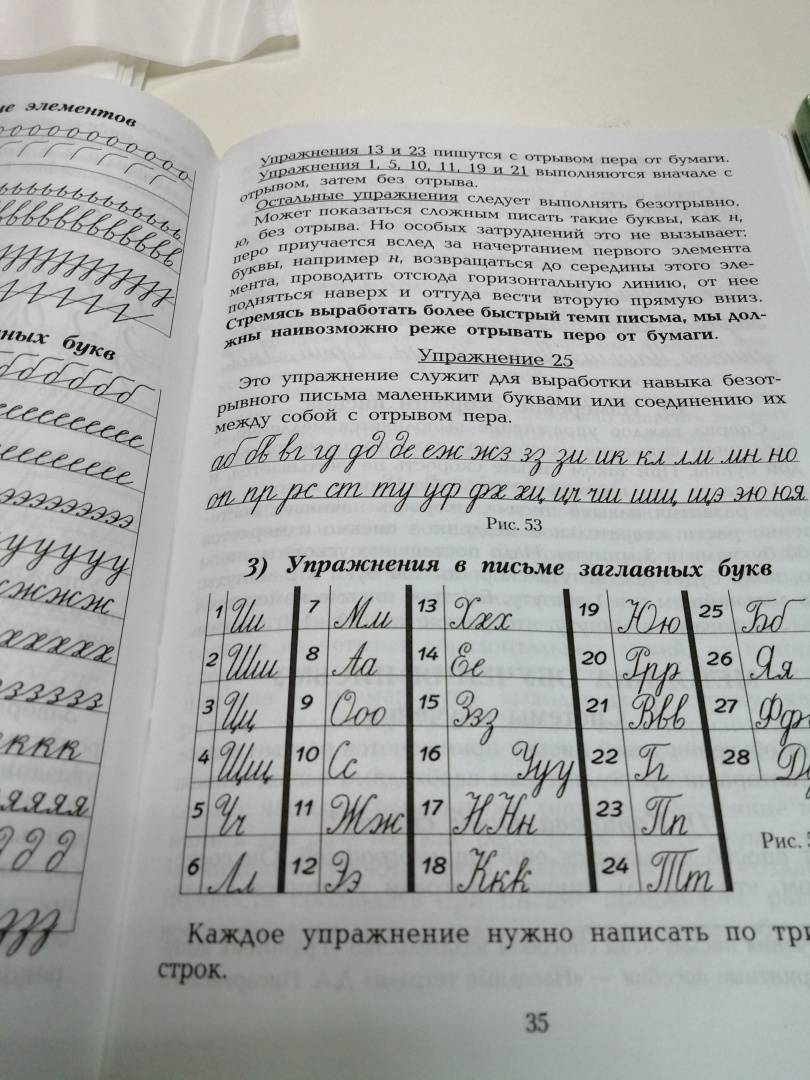 ие элементов
ных букв
Упражнения 13 и 23 пишутся с отрывом пера от бумаги.
Упражнения 1, 5, 10, 11, 19 и 21 выполняются вначале с
отрывом, затем без отрыва.
Остальные упражнения следует выполнять безотрывно.
Может показаться сложным писать такие буквы, как н,
ю, без отрыва. Но особых затруднений это не вызывает:
перо приучается вслед за начертанием первого элемента
буквы, например н, возвращаться до середины этого эле-
мента, проводить отсюда горизонтальную линию, от нее
подняться наверх и оттуда вести вторую прямую вниз.
Стремясь выработать более быстрый темп письма, мы дол-
жны наивозможно реже отрывать перо от бумаги.
Упражнение 25
Это упражнение служит для выработки навыка безот-
рывного письма маленькими буквами или соединению их
между собой с отрывом пера.
аб бв вг гд дд де еж жз зз зи ик кл лм мн но
оп пр рс ст ту уф фх хц цч чш шщ щэ эю юя
Рис. 53
3) Упражнения в письме заглавных букв
1 Ии 7 Мм 13 Ххх 19 Юю 25 Бб
2 Шш 8 Аа 14 Ее 20 Ррр 26 Яя
3 Цц 9 Ооо 15 Ззз 21 Ввв 27 Фф
4 Щщ 10 Сс 16 Ууу 22 Гг 28 Д
5 Чч 11 Жж 17 ННн 23 Пп
6 Лл 12 Ээ 18 Ккк 24 Тт
Рис. 5
Каждое упражнение нужно написать по три
строк.
35